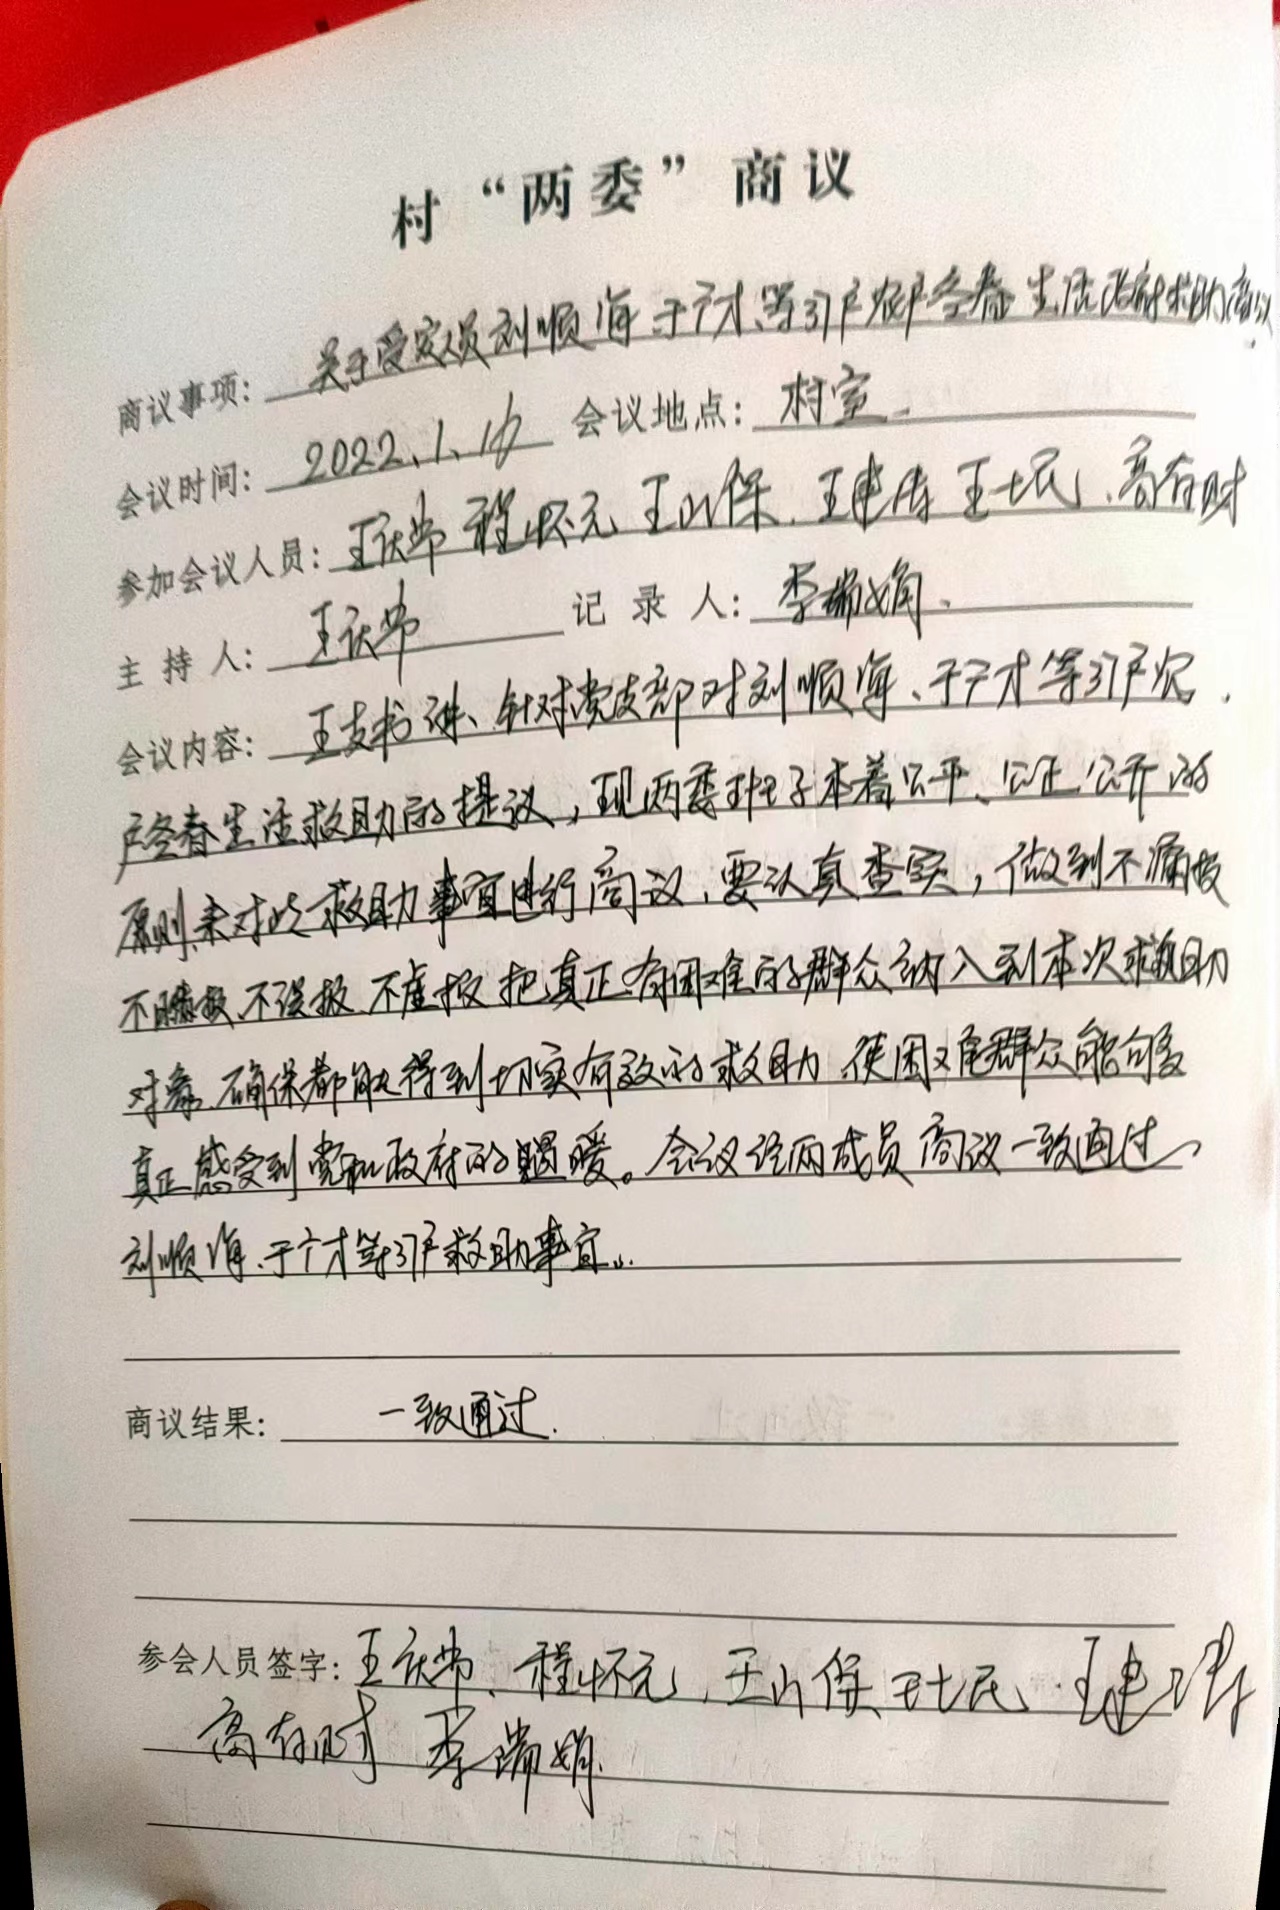 村“两委”商议
商议事项：关于受灾人员刘顺海、于广才等37户农户冬春生活政府救助商议
会议时间：2022.1.16 会议地点：村室
参加会议人员：王庆常 程怀元 王山保、王建涛 王士民、高有财
主持人：王庆常 记录人：李瑞娟、
会议内容：王支书讲、针对党支部对刘顺海、于广才等37户农
户冬春生活救助的提议，现两委班子本着公平、公正公开的
原则来对此救助事宜进行商议，要认真查实，做到不漏报
不瞒报、不误报、不虚报把真正有困难的群众纳入到本次救助
对象、确保都能得到切实有效的救助、使困难群众能够
真正感受到党和政府的温暖。会议经两成员商议一致通过
刘顺海、于广才等37户救助事宜。
商议结果：一致通过.
参会人员签字：王庆常、程怀元、王山保 王士民 王建涛
高有财 李瑞娟